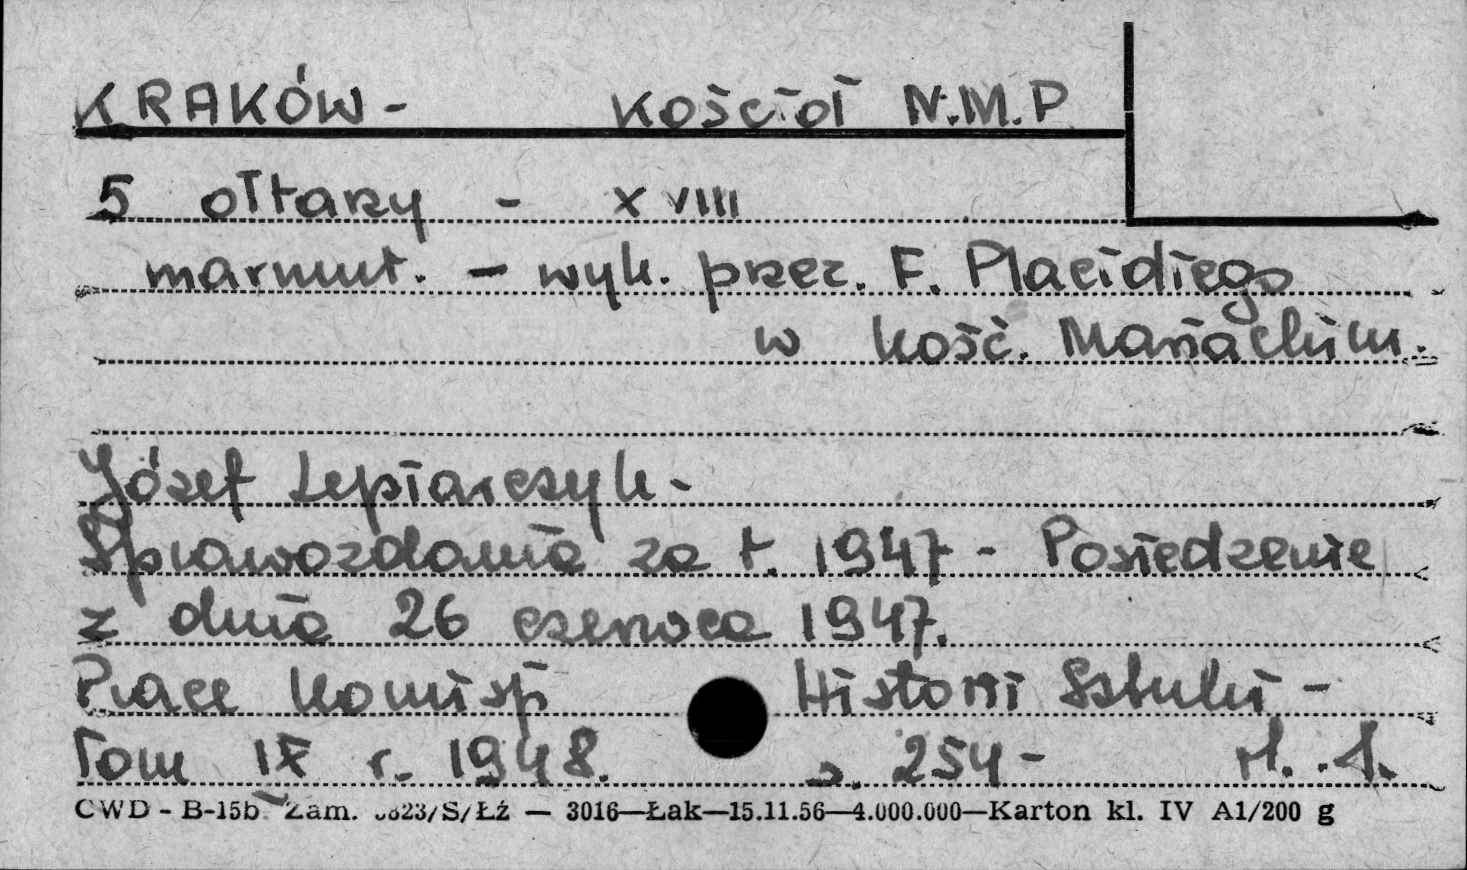 KRAKÓW - Kościół N.M.P
5 ołtarzy - XVIII
marmur. - wyk. przez. F. Placidiego
w kość. Mariackim.
Józef Lepiarczyk -
Sprawozdania za r. 1947 - Posiedzenie
z dnia 26 czerwca 1947.
Prace Komisji Historii Sztuki -
Tom IX r. 1948. s. 254 -
CWD - B-15b Zam. 3823/S/Łź — 3016—Łak—15.11.56—4.000.000—Karton kl. IV A1/200 g